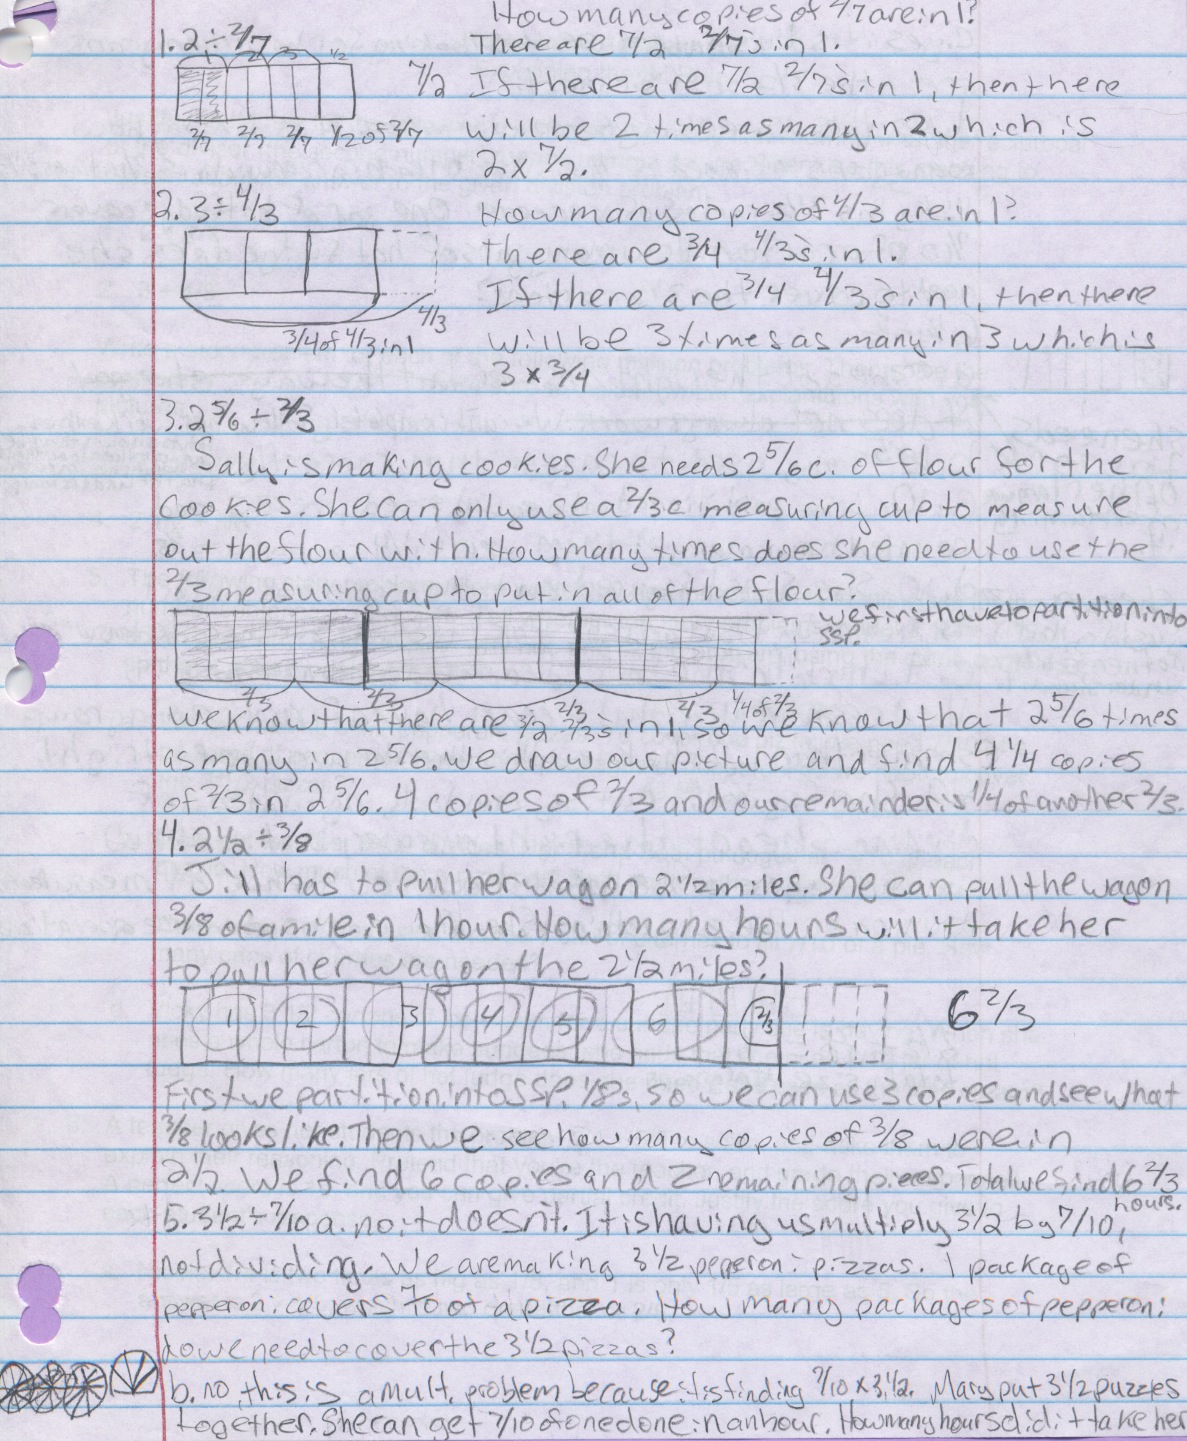 How many copies of 2/7 are in 1?
1. 2 ÷ 2/7
There are 7/2 2/7's in 1.
1 2 3 1/2
7/2
If there are 7/2 2/7's in 1, then there
2/7 2/7 2/7 1/2 of 2/7
will be 2 times as many in 2 which is
2 x 7/2.
2. 3 ÷ 4/3
How many copies of 4/3 are in 1?
there are 3/4 4/3's in 1.
If there are 3/4 4/3's in 1, then there
4/3
3/4 of 4/3 in 1
will be 3 times as many in 3 which is
3 x 3/4
3. 2 5/6 ÷ 2/3
Sally is making cookies. She needs 2 5/6 c. of flour for the
cookies. She can only use a 2/3 c measuring cup to measure
out the flour with. How many times does she need to use the
2/3 measuring cup to put in all of the flour?
we first have to partition into
SSP.
2/3 2/3 2/3 2/3 1/4 of 2/3
we know that there are 3/2 2/3's in 1, so we know that 2 5/6 times
as many in 2 5/6. We draw our picture and find 4 1/4 copies
of 2/3 in 2 5/6. 4 copies of 2/3 and our remainder is 1/4 of another 2/3.
4. 2 1/2 ÷ 3/8
Jill has to pull her wagon 2 1/2 miles. She can pull the wagon
3/8 of a mile in 1 hour. How many hours will it take her
to pull her wagon the 2 1/2 miles?
1 2 3 4 5 6 2/3
6 2/3
First we partition into SSP, 1/8s, so we can use 3 copies and see what
3/8 looks like. Then we see how many copies of 3/8 were in
2 1/2. We find 6 copies and 2 remaining pieces. Total we find 6 2/3
hours.
5. 3 1/2 ÷ 7/10 a. no it doesn't. It is having us multiply 3 1/2 by 7/10,
not dividing. We are making 3 1/2 pepperoni pizzas. 1 package of
pepperoni covers 7/10 of a pizza. How many packages of pepperoni
do we need to cover the 3 1/2 pizzas?
b. no, this is a mult. problem because its finding 7/10 x 3 1/2. Mary put 3 1/2 puzzles
together. She can get 7/10 of one done in an hour. How many hours did it take her